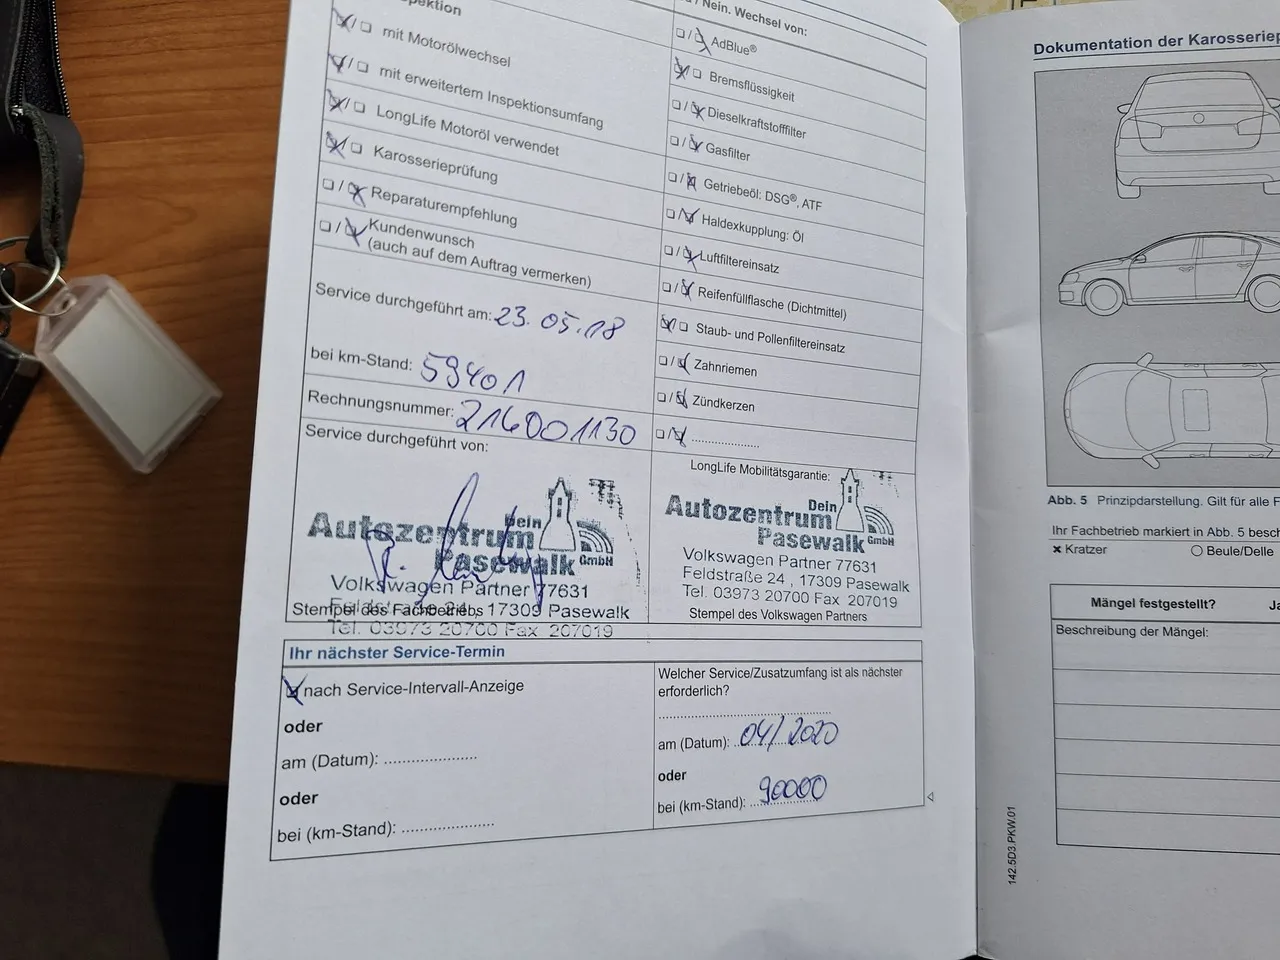 mit Motorölwechsel
mit erweitertem Inspektionsumfang
LongLife Motoröl verwendet
Karosserieprüfung
Reparaturempfehlung
Kundenwunsch
(auch auf dem Auftrag vermerken)
Service durchgeführt am: 23.05.18
bei km-Stand: 59401
Rechnungsnummer: 216001130
Service durchgeführt von:
Dein
Autozentrum
Pasewalk GmbH
Volkswagen Partner 77631
17309 Pasewalk
Stempel des Fachbetriebs
Tel. 03973 20700 Fax 207019
/ Nein. Wechsel von:
AdBlue®
Bremsflüssigkeit
Dieselkraftstofffilter
Gasfilter
Getriebeöl: DSG®, ATF
Haldexkupplung: Öl
Luftfiltereinsatz
Reifenfüllflasche (Dichtmittel)
Staub- und Pollenfiltereinsatz
Zahnriemen
Zündkerzen
LongLife Mobilitätsgarantie:
Dein
Autozentrum
Pasewalk GmbH
Volkswagen Partner 77631
Feldstraße 24 , 17309 Pasewalk
Tel. 03973 20700 Fax 207019
Stempel des Volkswagen Partners
Ihr nächster Service-Termin
nach Service-Intervall-Anzeige
oder
am (Datum): ................
oder
bei (km-Stand): ................
Welcher Service/Zusatzumfang ist als nächster
erforderlich?
am (Datum): 04/2020
oder
bei (km-Stand): 90000
Dokumentation der
Abb. 5 Prinzipdarstellung. Gilt für alle
Ihr Fachbetrieb markiert in Abb. 5
× Kratzer ○ Beule/Delle
Mängel festgestellt?
Beschreibung der Mängel:
142.5D3.PKW.01